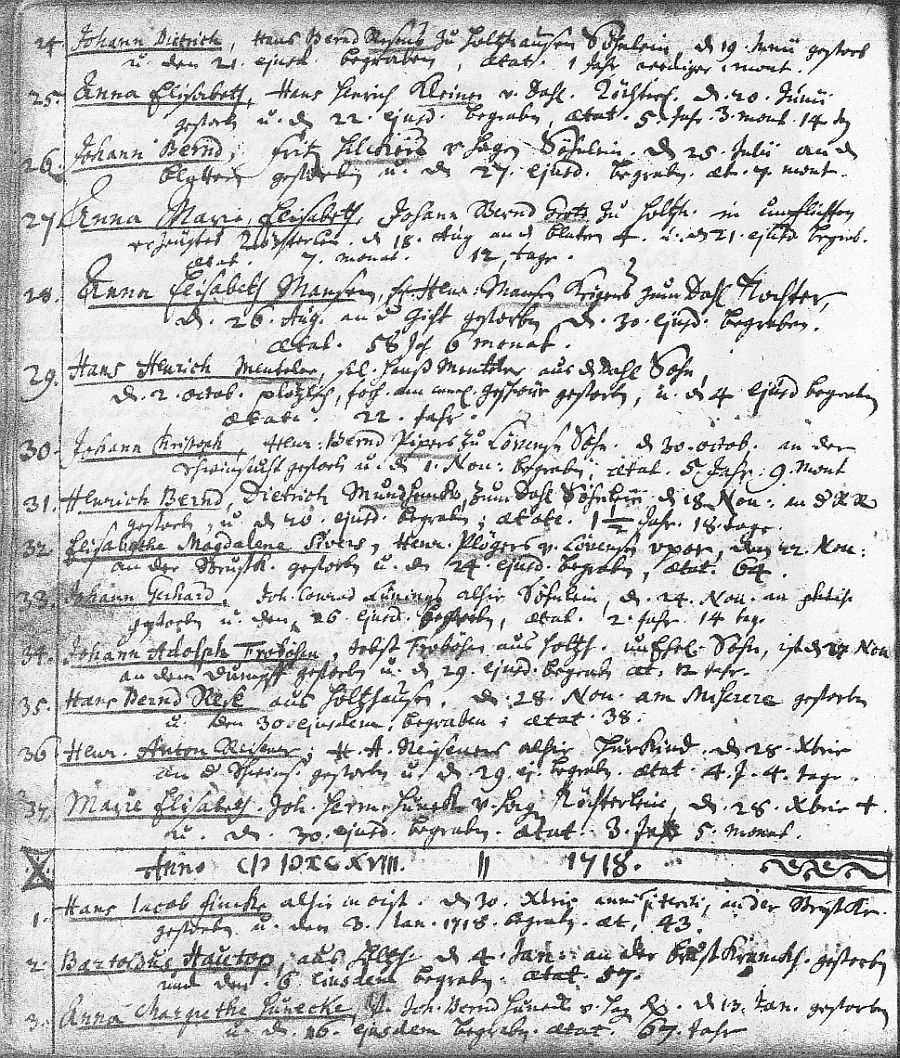 24 Johann Dietrich, Hans Bernd zu Holthausen Söhnlein, d 19. Junii gestorb
u. den 21. ejusd. begraben, ætat. 1 Jahr weniger 1 mont.
25. Anna Elisabeth, Hans Henrich Kleinen v. Dahl. Töchterl. d. 20. Junii
gestorb. u. d. 22. ejusd. begraben, ætat. 5. Jahr. 3. mont. 14 
26. Johann Bernd, Fritz v Hagen Söhnlein. d. 25. Julii an d
Blattern gestorben u. d 27. ejusd. begraben. æt. 7. mont.
27. Anna Marie Elisabeth, Johann Bernd zu Holth. in 
erzeugtes Töchterlein. d. 18. Aug an d blatern +. u. d 21. ejusd begrab.
ætat. 7. monat. 12 tage.
28. Anna Elisabeth Mansen, Henr: Mansen Krigers zum Dahl Tochter,
d. 26. Aug. an d Gicht gestorben, d. 30. ejusd. begraben.
ætat. 58 Jah 6 monat.
29. Hans Henrich Menteler, sel. Menteler aus d Dahl Sohn,
d. 2. octob. plötzlich, gestorb, u. d 4 ejusd begraben
ætat. 22. Jahr.
30. Johann Christoph, Henr: Bernd Pipers zu Lövensen Söhn. d 30. octob. an der
Schwinsucht gestorb u. d 1. Nov: begraben, ætat. 5 Jahr. 9. mont
31. Henrich Bernd, Dietrich zum Dahl Söhnlein, d 18 Nov: an d
gestorben, u. d 20. ejusd. begraben; ætat. 1 1/2 Jahr. 18. tage.
32. Elisabethe Magdalene Sivers, Henr. Plögers v. Lövensen uxor, den 22. Nov:
an der Brustk. gestorben u. den 24. ejusd. begraben, ætat. 64.
33. Johann Gerhard, Joh. Conrad Lünings alhir Söhnlein, d. 24. Nov. an
gestorben u. den 26 ejusd. begraben, ætat. 2. Jahr 14 tag.
34. Johann Adolph Fröböhn, Jobst Fröböhn aus Holth. Sohn, ist d 27. Nov
an dem Dumpff gestorben u. d 29. ejusd. begrab æt. 12 Jahr.
35. Hans Bernd Rese aus Holthausen, d. 28. Nov. am Miserere gestorben
u. den 30. ejusdem begraben; ætat 38.
36 Henr. Anton Reisener, H. A. Reiseners alhir d. 28. Xbris
an d Schwins. gestorben u. d. 29. ej. begrab. ætat. 4. J. 4. tage.
37. Marie Elisabeth. Joh. Herm. Hüneck v. Hag. Töchterlein, d. 28. Xbris +
u. d. 30. ejusd. begraben. ætat. 3. Jahr 5. monat.
Anno CIƆ IƆCCXVIII. || 1718.
1. Hans Jacob Fincke alhir d 30. Xbris anni, an der BrustKr.
gestorben u. den 3. Jan. 1718. begrab. æt. 43.
2. Bartoldus Hautop, aus Holth. d 4 Jan: an der brustKranckh. gestorben
und den 6 ejusdem begraben ætat. 57.
3. Anna Margrethe Hünecke, Joh. Bernd Hüneck v. Hag d. 13. Jan. gestorben
u. d. 16. ejusdem begraben. ætat. 67. Jahr